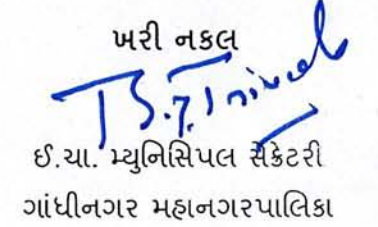 ખરી નકલ
ઈ.ચા. મ્યુનિસિપલ સેક્રેટરી
ગાંધીનગર મહાનગરપાલિકા